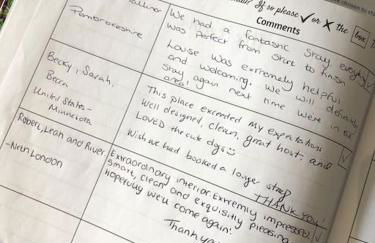 If so please ✓ or ✗ the box
Comments
Pembrokeshire
We had a fantastic stay, everything
was perfect from start to finish
Louise was extremely helpful
and welcoming. We will definitely
stay again next time we're in the
area!
Becky, Sarah,
Bern
United States -
Minnesota
This place exceeded my expectations
Well designed, clean, great host, and
LOVED the cute dogs
Wish we had booked a longer stay
THANK YOU!
Robert, Leah and River
- Nr London
Extraordinary interior. Extremely impressive,
smart, clean and exquisitely pleasing
hopefully we'll come again!
Thank you